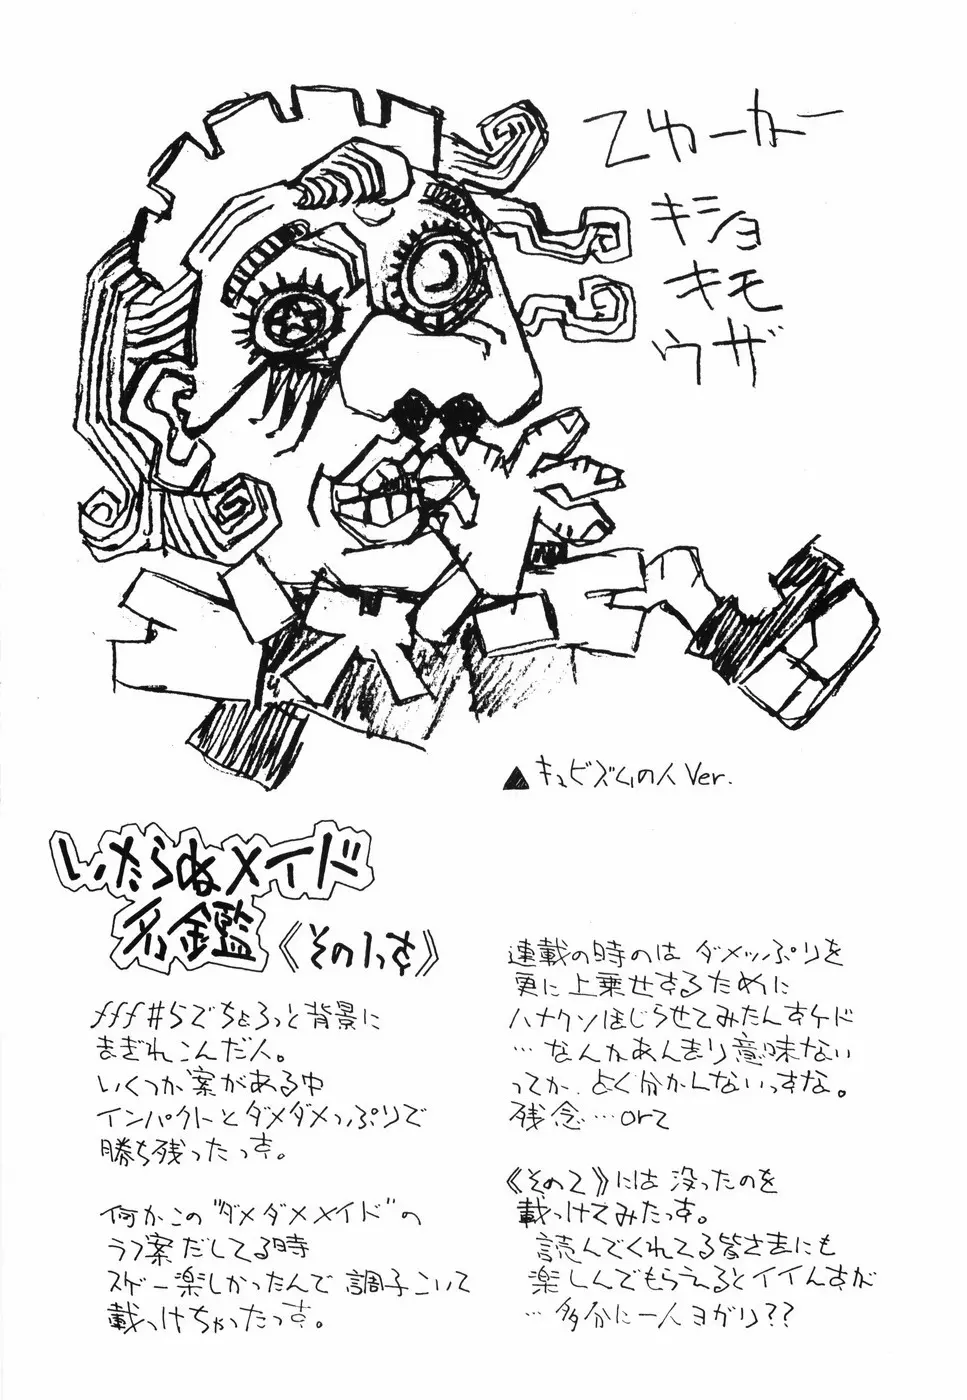 てカーカー
キショ
キモ
ウザ
▲キュビズムの人Ver.
いたらぬメイド
名鑑
《その1っす》
fff#5でちょろっと背景に
まぎれこんだ人。
いくつか案がある中
インパクトとダメダメっぷりで
勝ち残ったっす。
何かこの“ダメダメメイド”の
ラフ案だしてる時
スゲー楽しかったんで調子こいて
載っけちゃったっす。
連載の時のは ダメッぷりを
更に上乗せするために
ハナクソほじらせてみたんすケド
…なんかあんまり意味ない
ってか、よく分かんないっすな。
残念…orz
《その2》には没ったのを
載っけてみたっす。
読んでくれてる皆さまにも
楽しんでもらえるとイイんすが
…多分に一人ヨガリ??